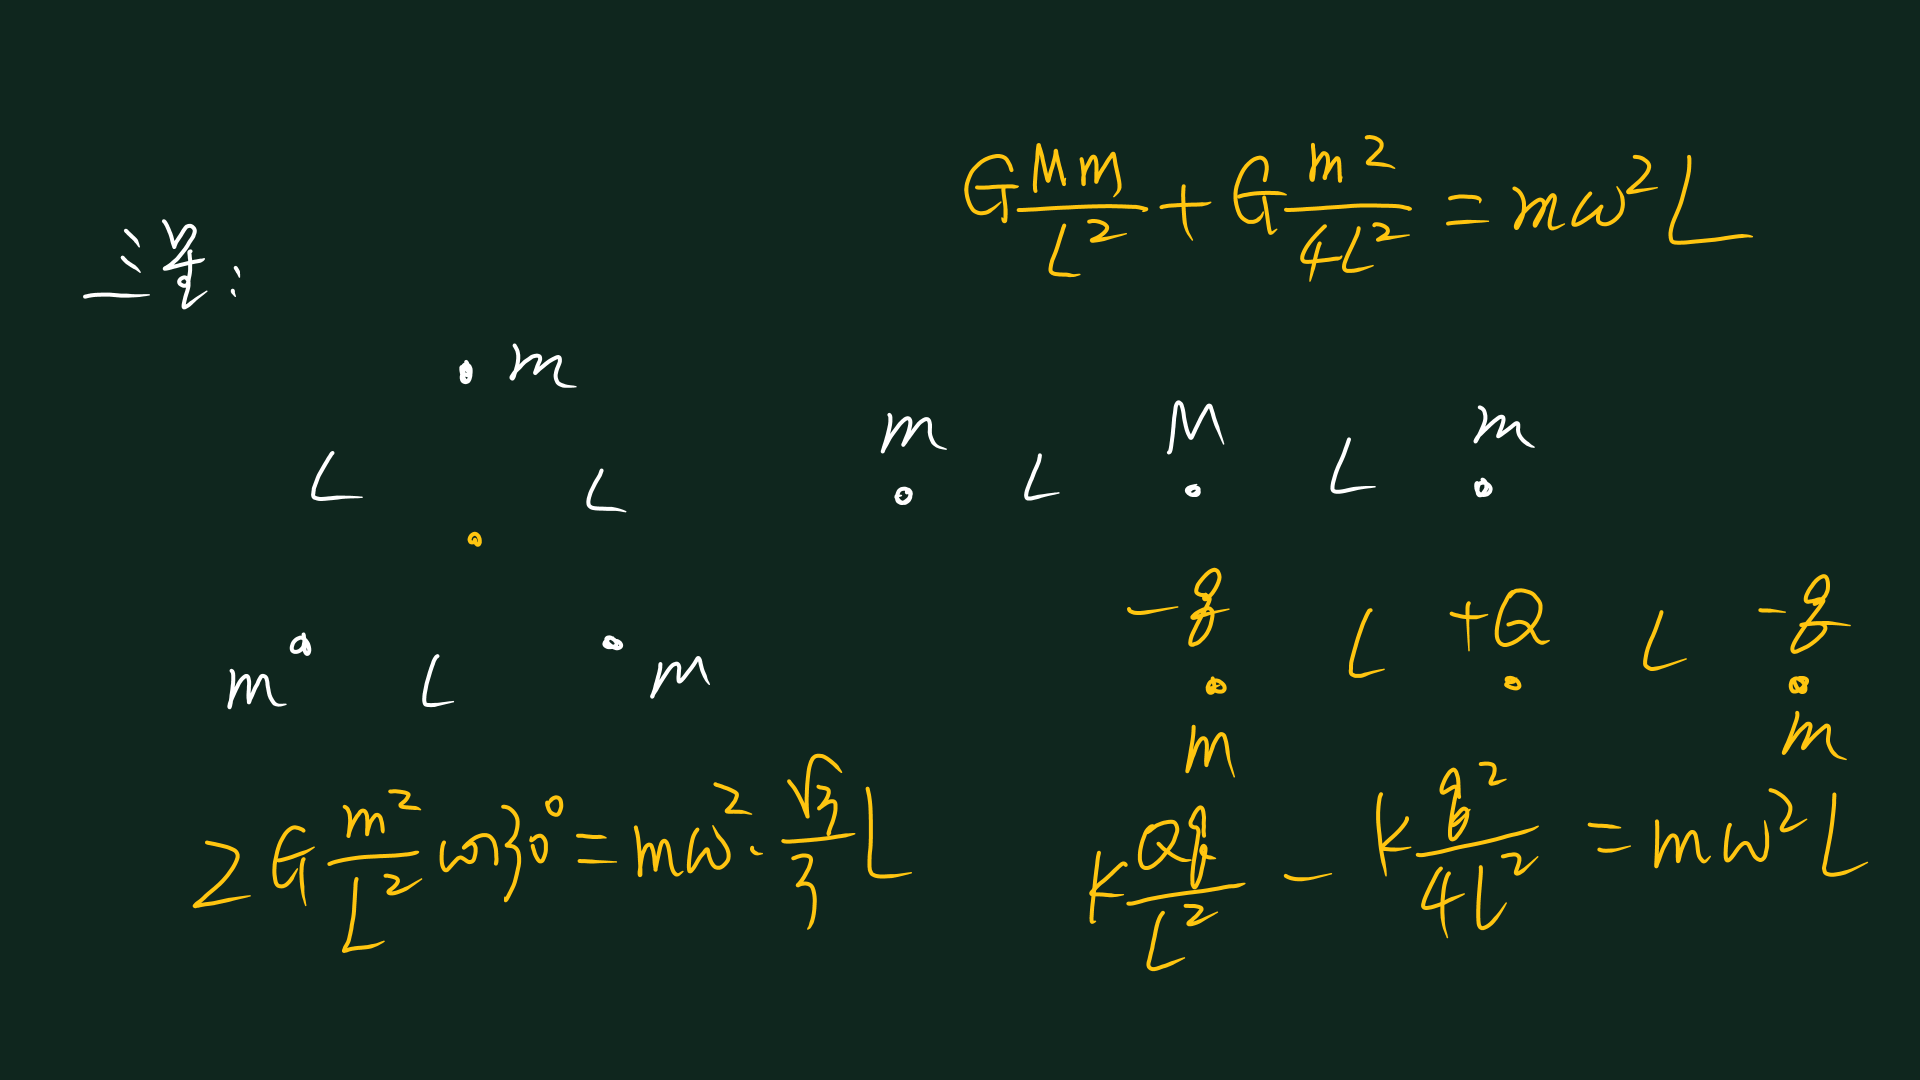 三星:
G\frac{Mm}{L^2}+G\frac{m^2}{4L^2}=mω^2L
m
L L
m L m
m L M L m
-q L +Q L -q
m m
2G\frac{m^2}{L^2}cos30°=mω^2·\frac{\sqrt{3}}{3}L
k\frac{Qq}{L^2}-k\frac{q^2}{4L^2}=mω^2L